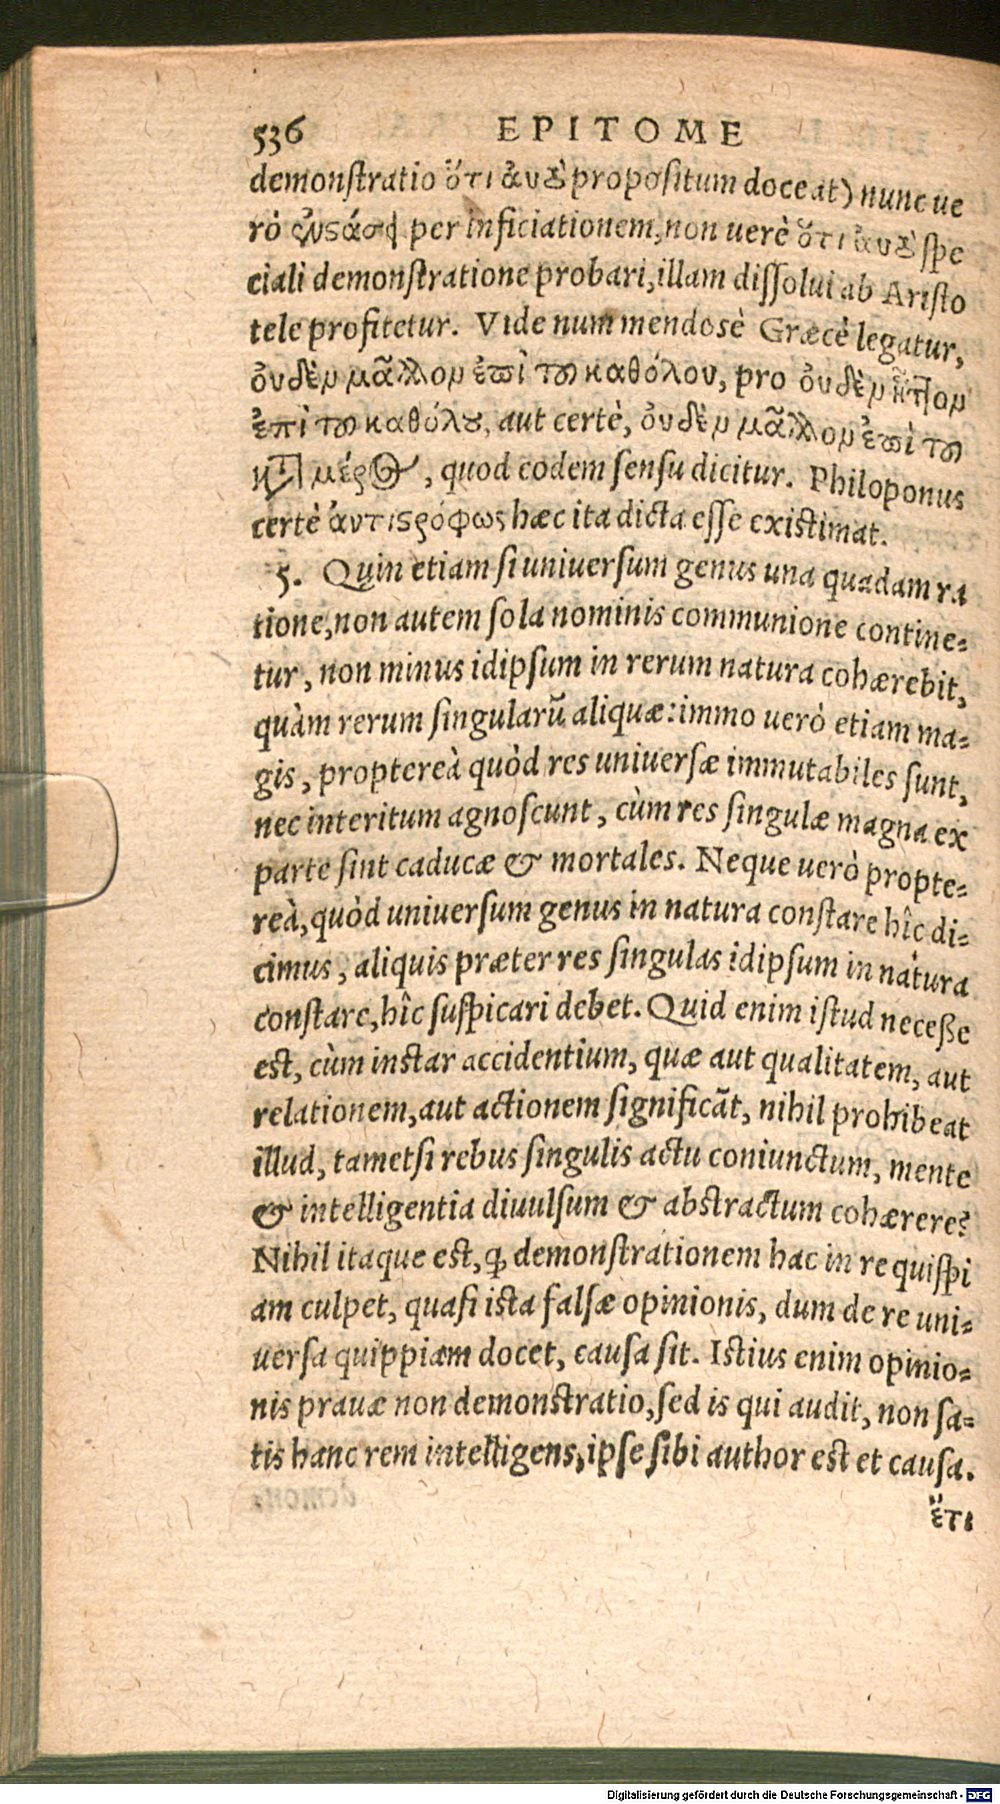 536 EPITOME
demonstratio ὅτι ἀυȣ̀ propositum doceat) nunc ue
rò per inficiationem, non uerè ὅτι ἀυȣ̀ spe
ciali demonstratione probari, illam dissolui ab Aristo
tele profitetur. Vide num mendosè Græcè legatur,
ὀυδὲν μᾶλλον ἐπὶ τ καθόλου, pro ὀυδὲν ἧττον
ἐπὶ τ καθόλȣ, aut certè, ὀυδὲν μᾶλλον ἐπὶ τ
κτ μέρος, quod eodem sensu dicitur. Philoponus
certè ἀντιστρόφως hæc ita dicta esse existimat.
5. Quin etiam si uniuersum genus una quadam ra
tione, non autem sola nominis communione contine=
tur, non minus idipsum in rerum natura cohærebit,
quàm rerum singularũ aliquæ: immo uerò etiam ma=
gis, proptereà quòd res uniuersæ immutabiles sunt,
nec interitum agnoscunt, cùm res singulæ magna ex
parte sint caducæ & mortales. Neque uerò propte=
reà, quòd uniuersum genus in natura constare hîc di=
cimus, aliquis præter res singulas idipsum in natura
constare, hîc suspicari debet. Quid enim istud neceße
est, cùm instar accidentium, quæ aut qualitatem, aut
relationem, aut actionem significãt, nihil prohibeat
illud, tametsi rebus singulis actu coniunctum, mente
& intelligentia diuulsum & abstractum cohærere?
Nihil itaque est, ꝙ demonstrationem hac in re quispi
am culpet, quasi ista falsæ opinionis, dum de re uni=
uersa quippiam docet, causa sit. Istius enim opinio=
nis prauæ non demonstratio, sed is qui audit, non sa=
tis hanc rem intelligens, ipse sibi author est et causa.
ἔτι
Digitalisierung gefördert durch die Deutsche Forschungsgemeinschaft - DFG